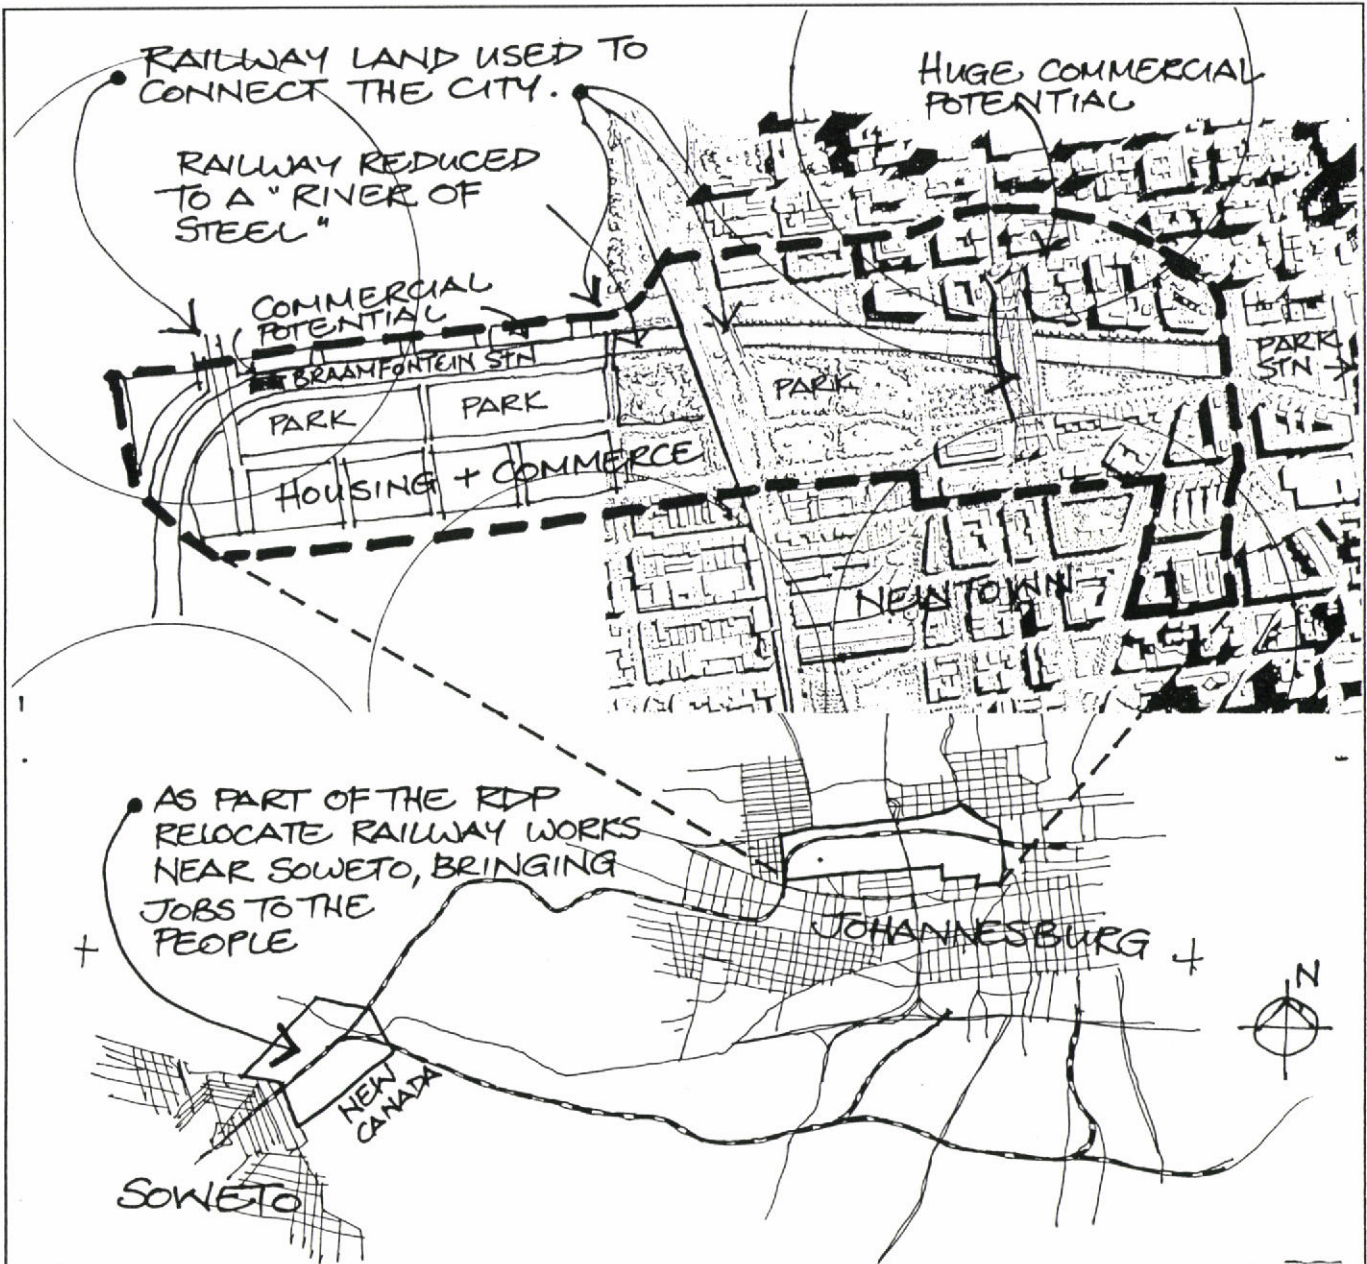 RAILWAY LAND USED TO
CONNECT THE CITY.
HUGE COMMERCIAL
POTENTIAL
RAILWAY REDUCED
TO A "RIVER OF
STEEL"
COMMERCIAL
POTENTIAL
BRAAMFONTEIN STN
PARK
PARK
PARK
PARK
STN
HOUSING + COMMERCE
NEWTOWN
AS PART OF THE RDP
RELOCATE RAILWAY WORKS
NEAR SOWETO, BRINGING
JOBS TO THE
PEOPLE
JOHANNESBURG
N
NEW
CANADA
SOWETO